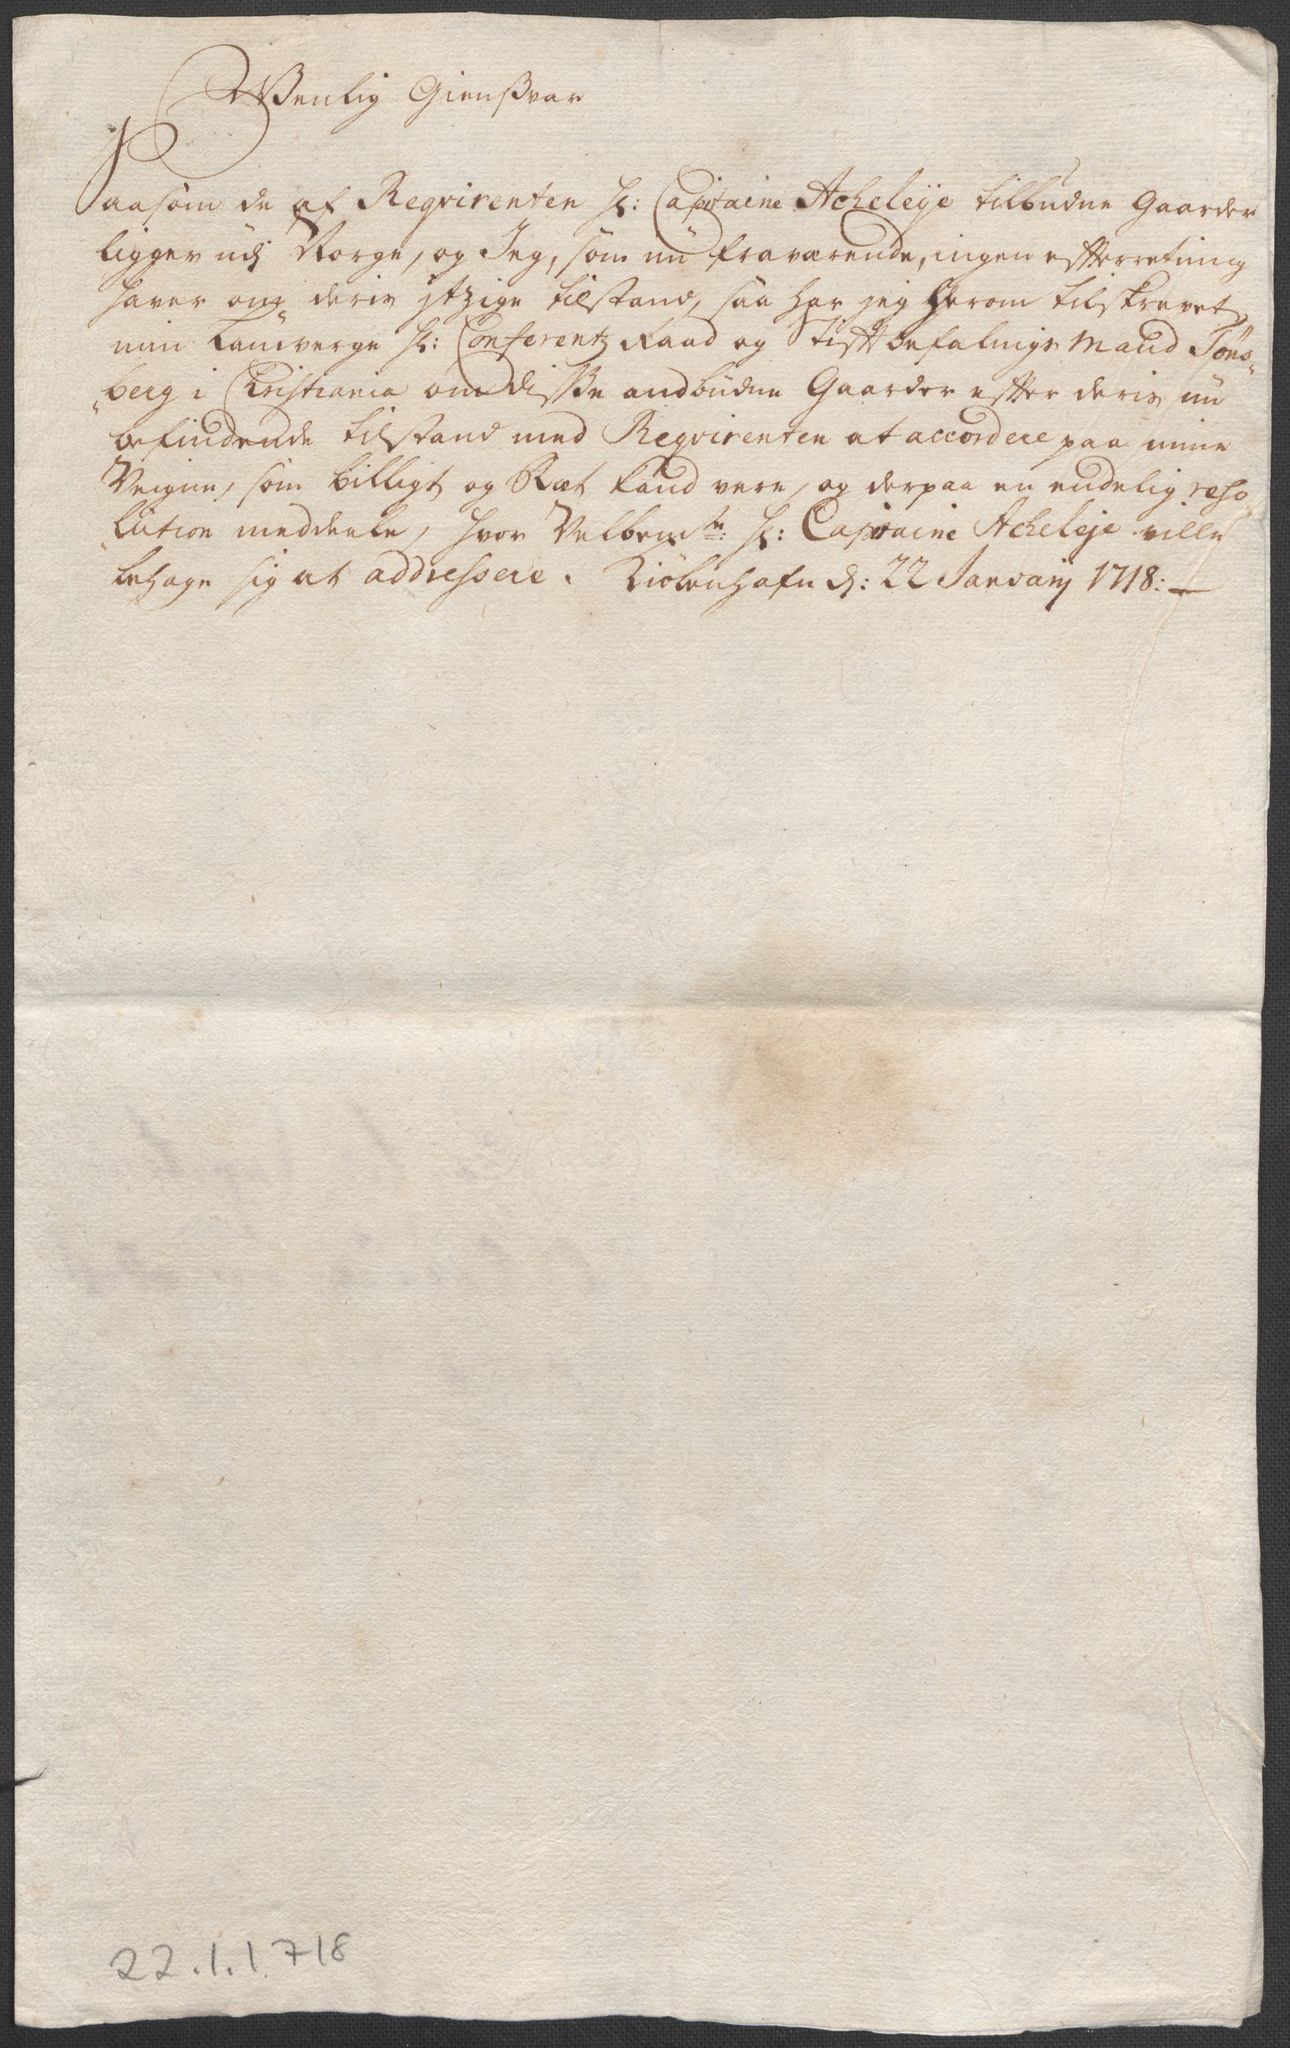 Venlig Giensvar
Saasom de af Reqvirenten Hr: Capitaine Acheleÿe tilbudne Gaarder
ligger udj Norge, og Jeg, som nu fraværende, ingen efterretning
haver om deris itzige tilstand, saa har jeg herom tilskrevet
min Laugverge Hr: Conferentz Raad og Stiftbefalnings Mand Töns-
berg i Christiania om disse andbudne Gaarder efter deris nu
befindende tilstand med Reqvirenten at accordere paa mine
Veigne, som billigt og Ræt kand vere, og derpaa en endelig reso
lution meddeele, hvor Velbemte: Hr: Capitaine Acheleje ville
behage sig at addressere. Kiöbenhafn d: 22 Januarij 1718:
22.1.1718